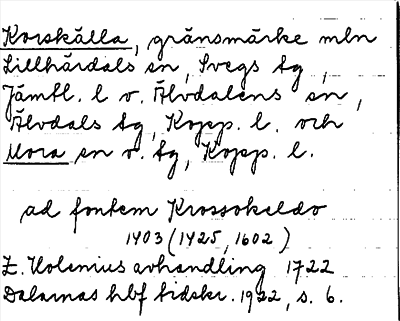 Korskälla, gränsmärke mln
Lillhärdals sn, Svegs tg,
Jämtl. l o. Älvdalens sn,
Älvdals tg, Kopp. l. och
Mora sn o. tg, Kopp. l.
ad fontem Krossokeldo
1403 (1425, 1602)
E. Holenius avhandling 1722
Dalarnas hbf tidskr. 1922, s. 6.